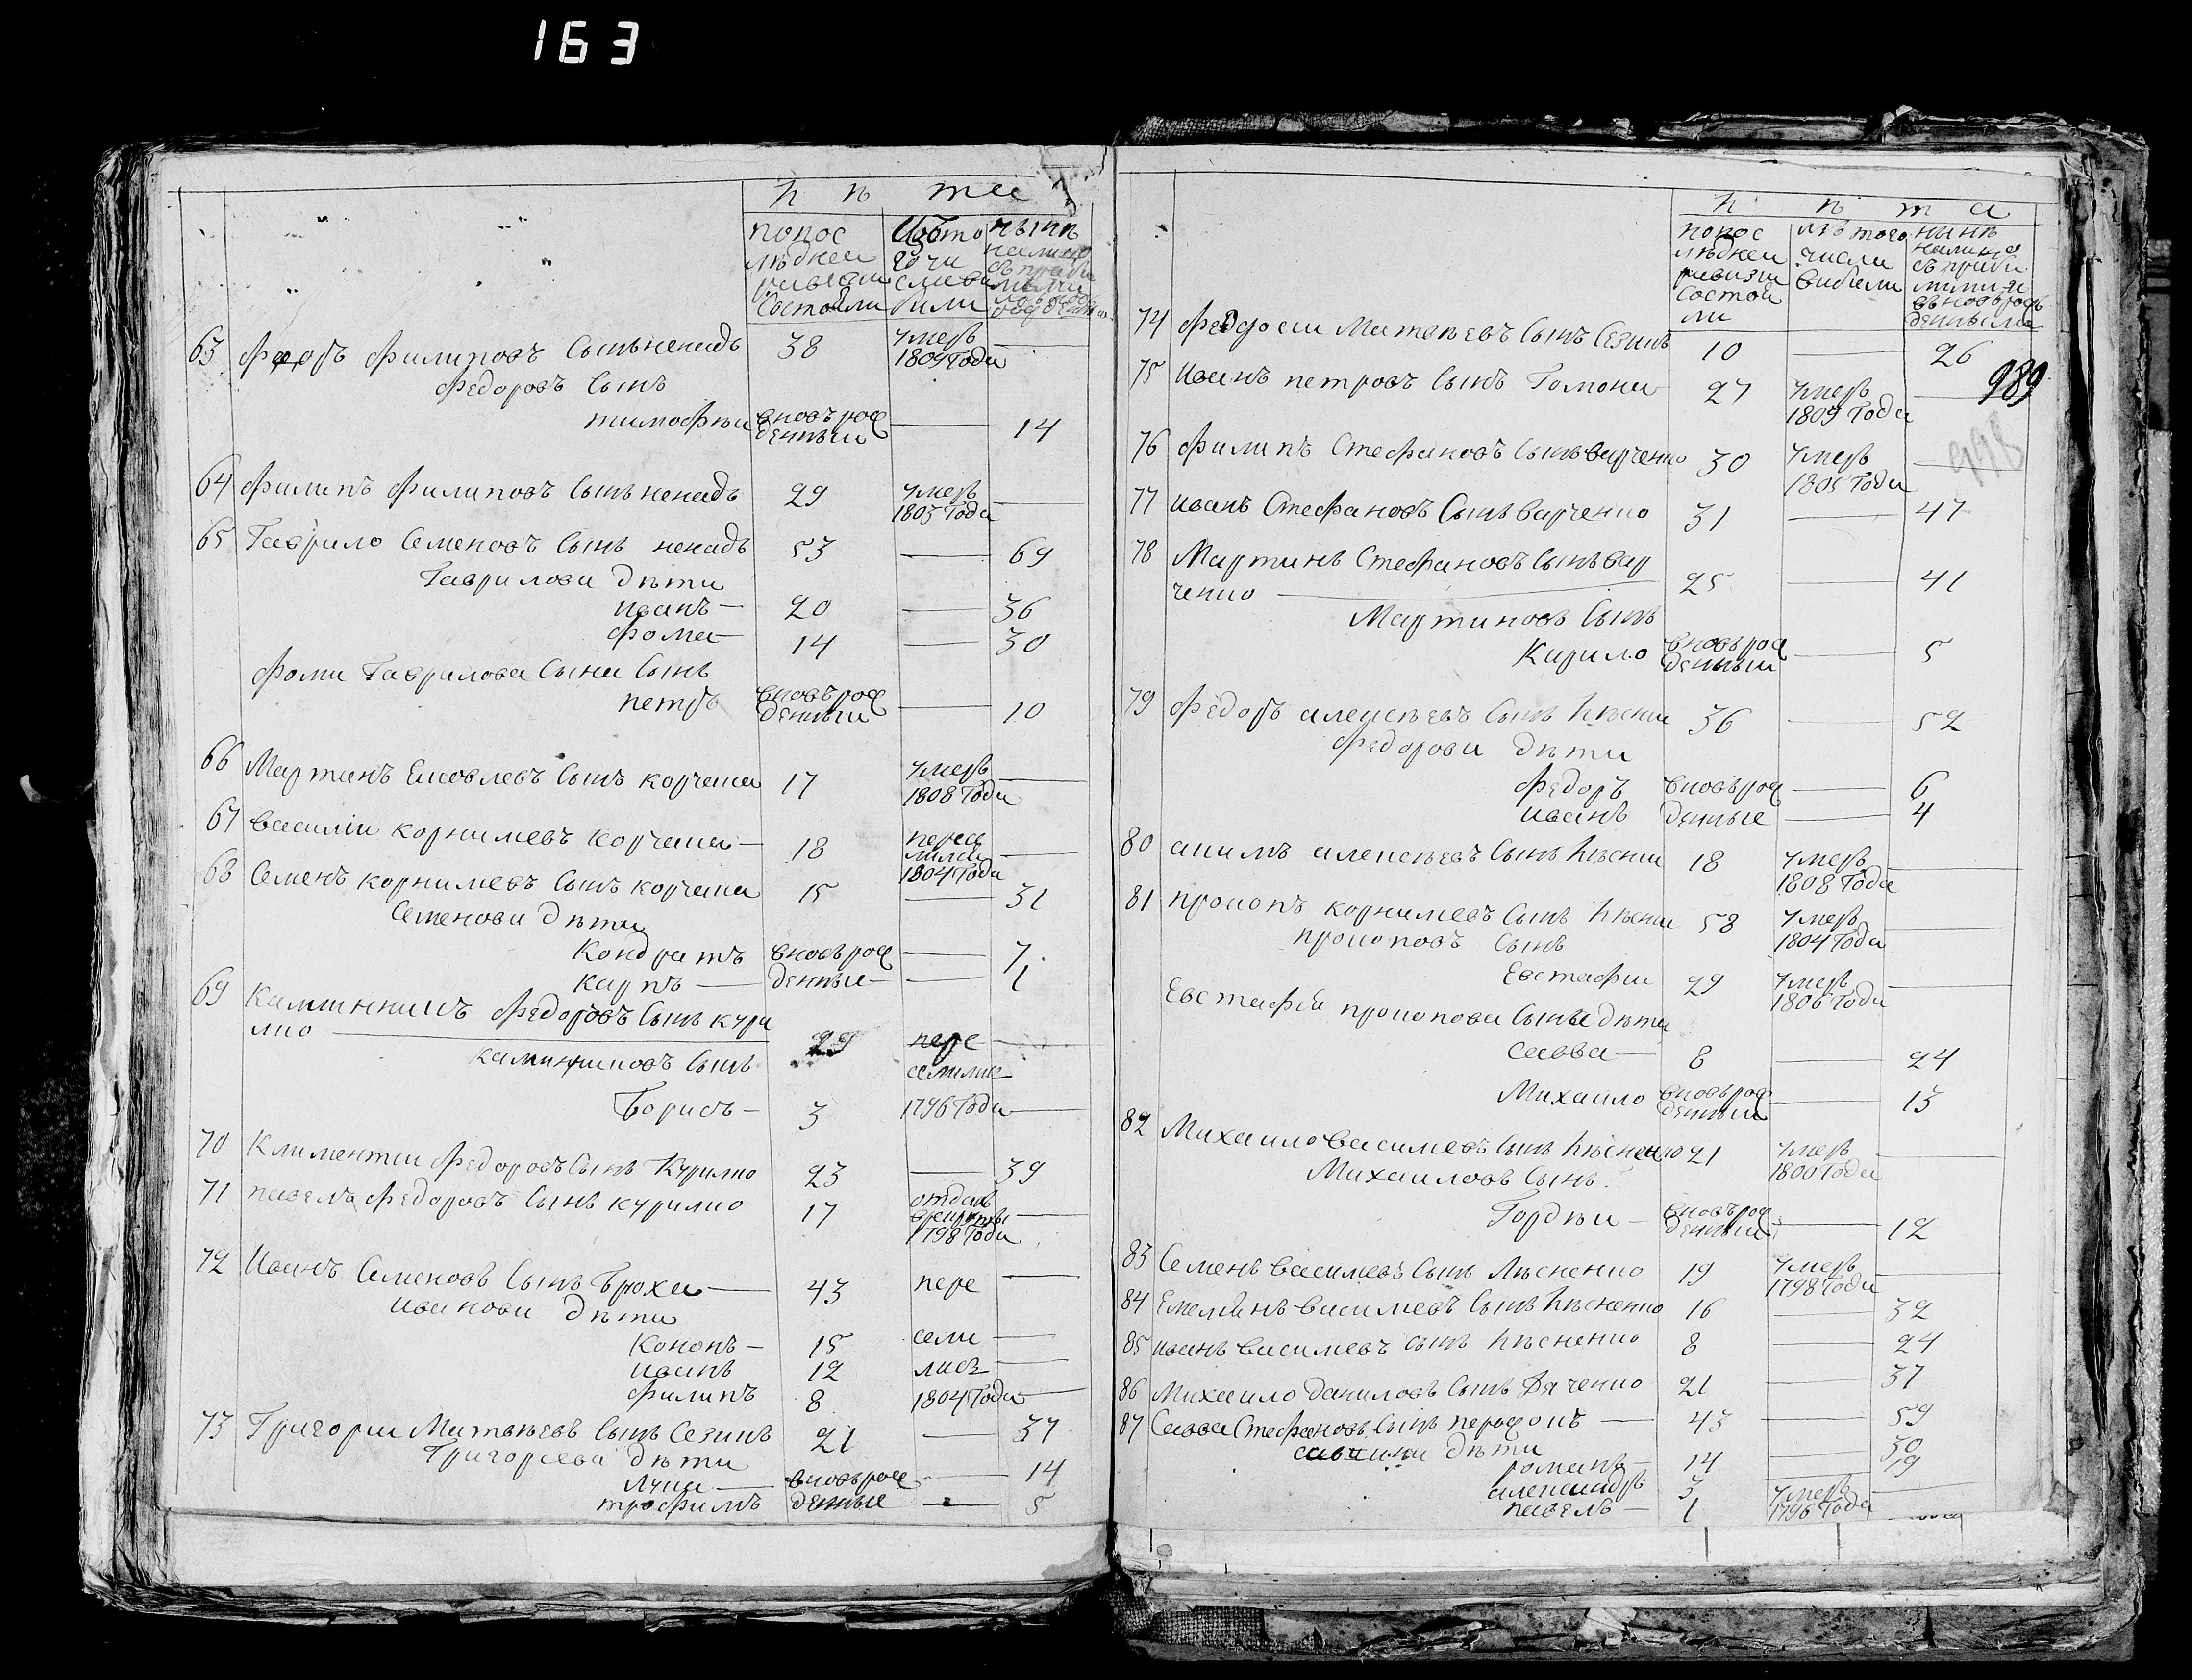 163
лѣта
попос
лѣдней
ревизіи
состояли
Изъ то
го чи
сла ви
били
нынѣ
63 Федоръ Филиповъ сынъ ненадъ 38 умеръ
1809 Года —
Федоровъ сынъ
тимофѣи вновърож
денный — 14
64 Филипъ Филиповъ сынъ ненадъ 29 умеръ
1803 Года —
65 Гаврило Семеновъ сынъ ненадъ 53 — 69
Гаврилови дѣти
иванъ — 20 — 36
фома — 14 — 30
Фоми Гаврилова сына сынъ
петръ вновърож
денный — 10
66 Мартинъ Еиовлевъ сынъ корчака 17 умеръ
1808 Года —
67 василіи корнилиевъ корчака — 18 пересе
лился
1804 Года —
68 Семенъ корнилиевъ сынъ корчака 15 — 31
Семенови дѣти
Кондратъ вновърож — 7
карпъ — денные — 1
69 Калинникъ Федоровъ сынъ кури
лко — 29 пере —
калинниковъ сынъ селилис
Борисъ — 3 1796 Года —
70 Климентіи Федоровъ сынъ Курилко 23 — 39
71 павелъ Федоровъ сынъ курилко 17 отданъ
врекруты
1798 Года —
72 Иванъ Семеновъ сынъ Броха — 43 пере —
иванови дѣти
Кононъ — 15 сели —
иванъ 12 лисъ —
филипъ 8 1804 Года —
73 Григории Матвѣевъ сынъ Сезинъ 21 — 37
Григориеви дѣти
лука — вновърож — 14
трофимъ денные — 5
лѣта
попос
лѣдней
ревизіи
состоя
ли
изъ того
числа
вибили
нынѣ
налицо
съ приби
лими и
вновърож
денными
74 Федосии Матвѣевъ сынъ Сезинъ 10 — 26
989
75 иванъ петровъ сынъ Гомона 27 умеръ
1809 Года —
76 Филипъ Стефановъ сынъ варченко 30 умеръ
1805 Года —
77 иванъ Стефановъ сынъ варченко 31 — 47
78 Мартинъ Стефановъ сынъ вар
ченко — 25 — 41
Мартиновъ сынъ
Кирило вновърож
денный — 5
79 Федоръ алексѣевъ сынъ лѣсни 36 — 52
Федорови дѣти
Федоръ вновърож — 6
иванъ денные — 4
80 акимъ алексѣевъ сынъ лѣсни 18 умеръ
1808 Года —
81 прокопъ корнилиевъ сынъ лѣсни 58 умеръ
1804 Года —
прокоповъ сынъ
Евстафіи 29 умеръ
1806 Года —
Евстафія прокопова сына дѣти
савва — 8 — 24
Михаило вновърож
денный — 13
82 Михаило василиевъ сынъ лѣсненко 21 умеръ
1800 Года —
Михаиловъ сынъ
Гордѣи — вновърож
денный — 12
83 Семенъ василиевъ сынъ Лѣсненко 19 умеръ
1798 Года —
84 Емелянъ василиевъ сынъ лѣсненко 16 — 32
85 иванъ василиевъ сынъ лѣсненко 8 — 24
86 Михаило даниловъ сынъ Дяченко 21 — 37
87 Савва Стефановъ сынъ перожокъ — 43 — 59
савини дѣти
романъ — 14 — 30
александръ 3 — 19
павелъ — 1 умеръ
1796 Года —